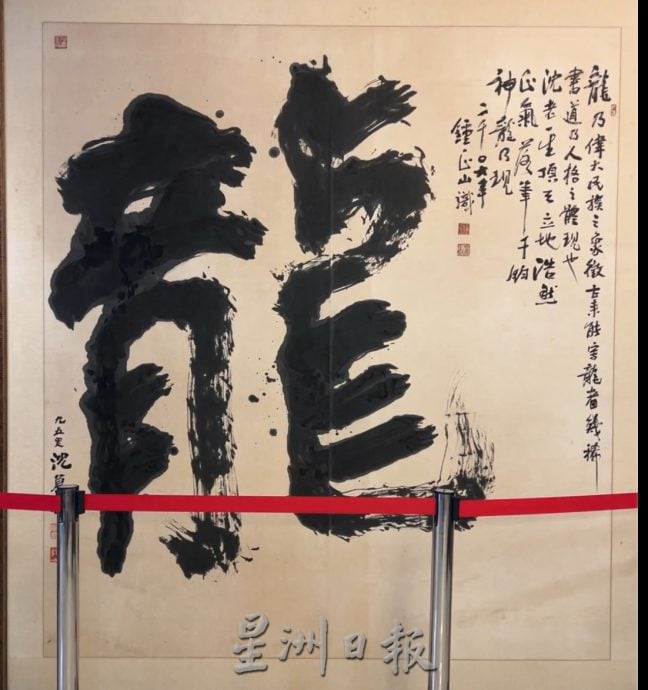 龍
龍乃偉大民族之象徵古來能寫龍者幾稀
書道乃人格之體現也
沈老一生頂天立地浩然
正氣落筆千鈞
神龍乃現
二千〇六年
鍾正山識
九五叟沈慕
星洲日報